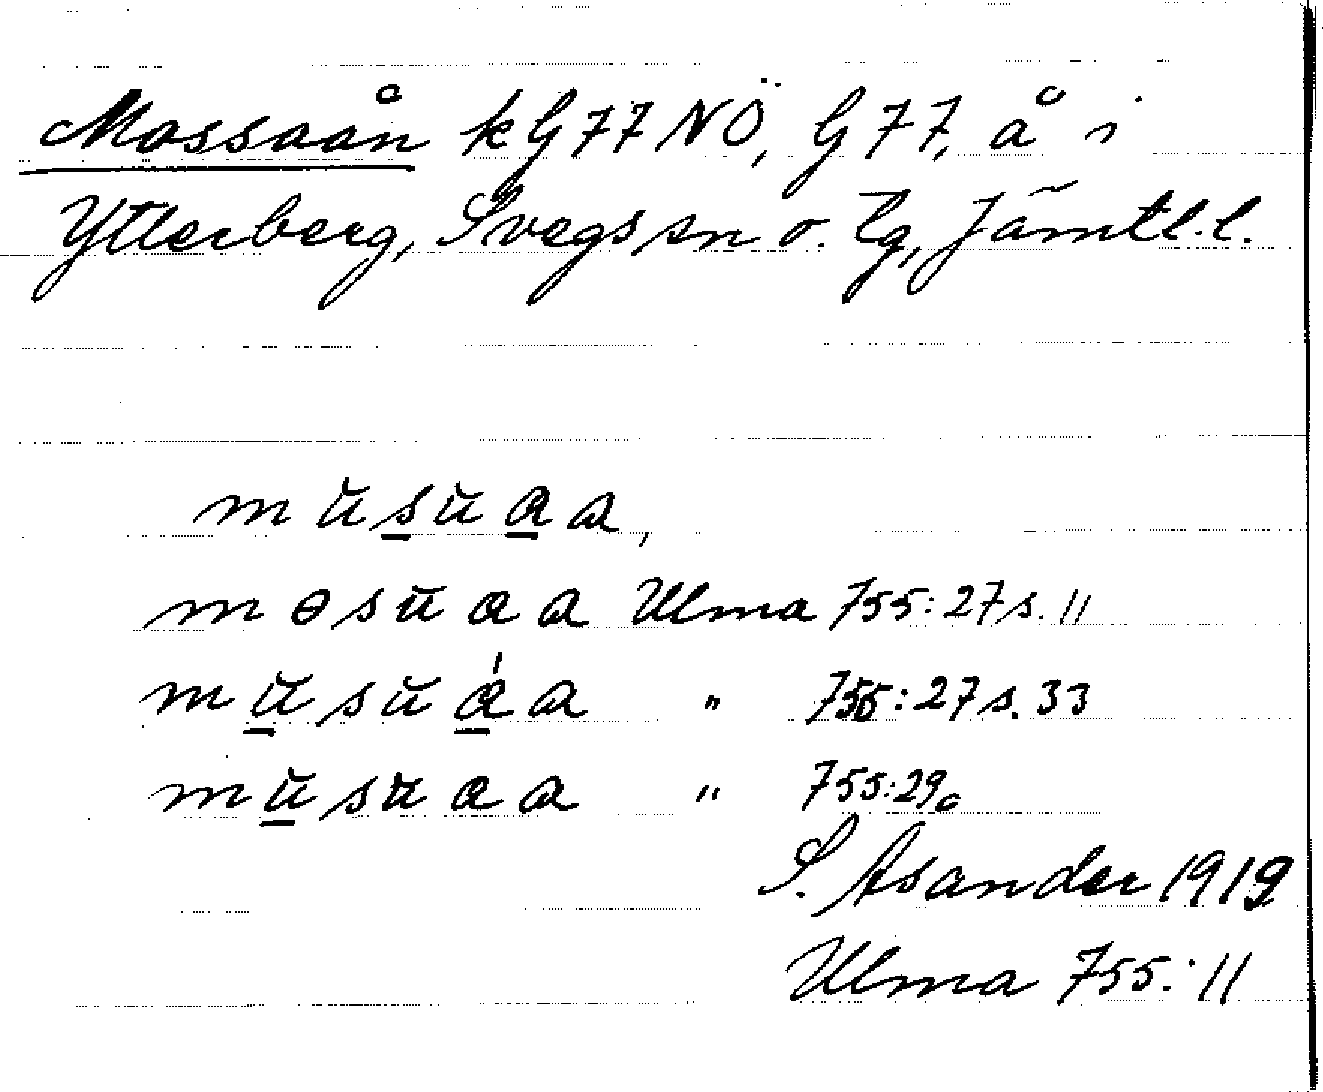 Mossaån k G77NÖ, G77, å i
Ytterberg, Svegs sn o. tg, Jämtl. l.
m ŭ s ŭ a a,
m ɵ s ŭ a a Ulma 755:27 s. 11
m ŭ s ŭ á a " 755:27 s. 33
m ŭ s ŭ a a " 755:29a
S. Åsander 1919
Ulma 755:11